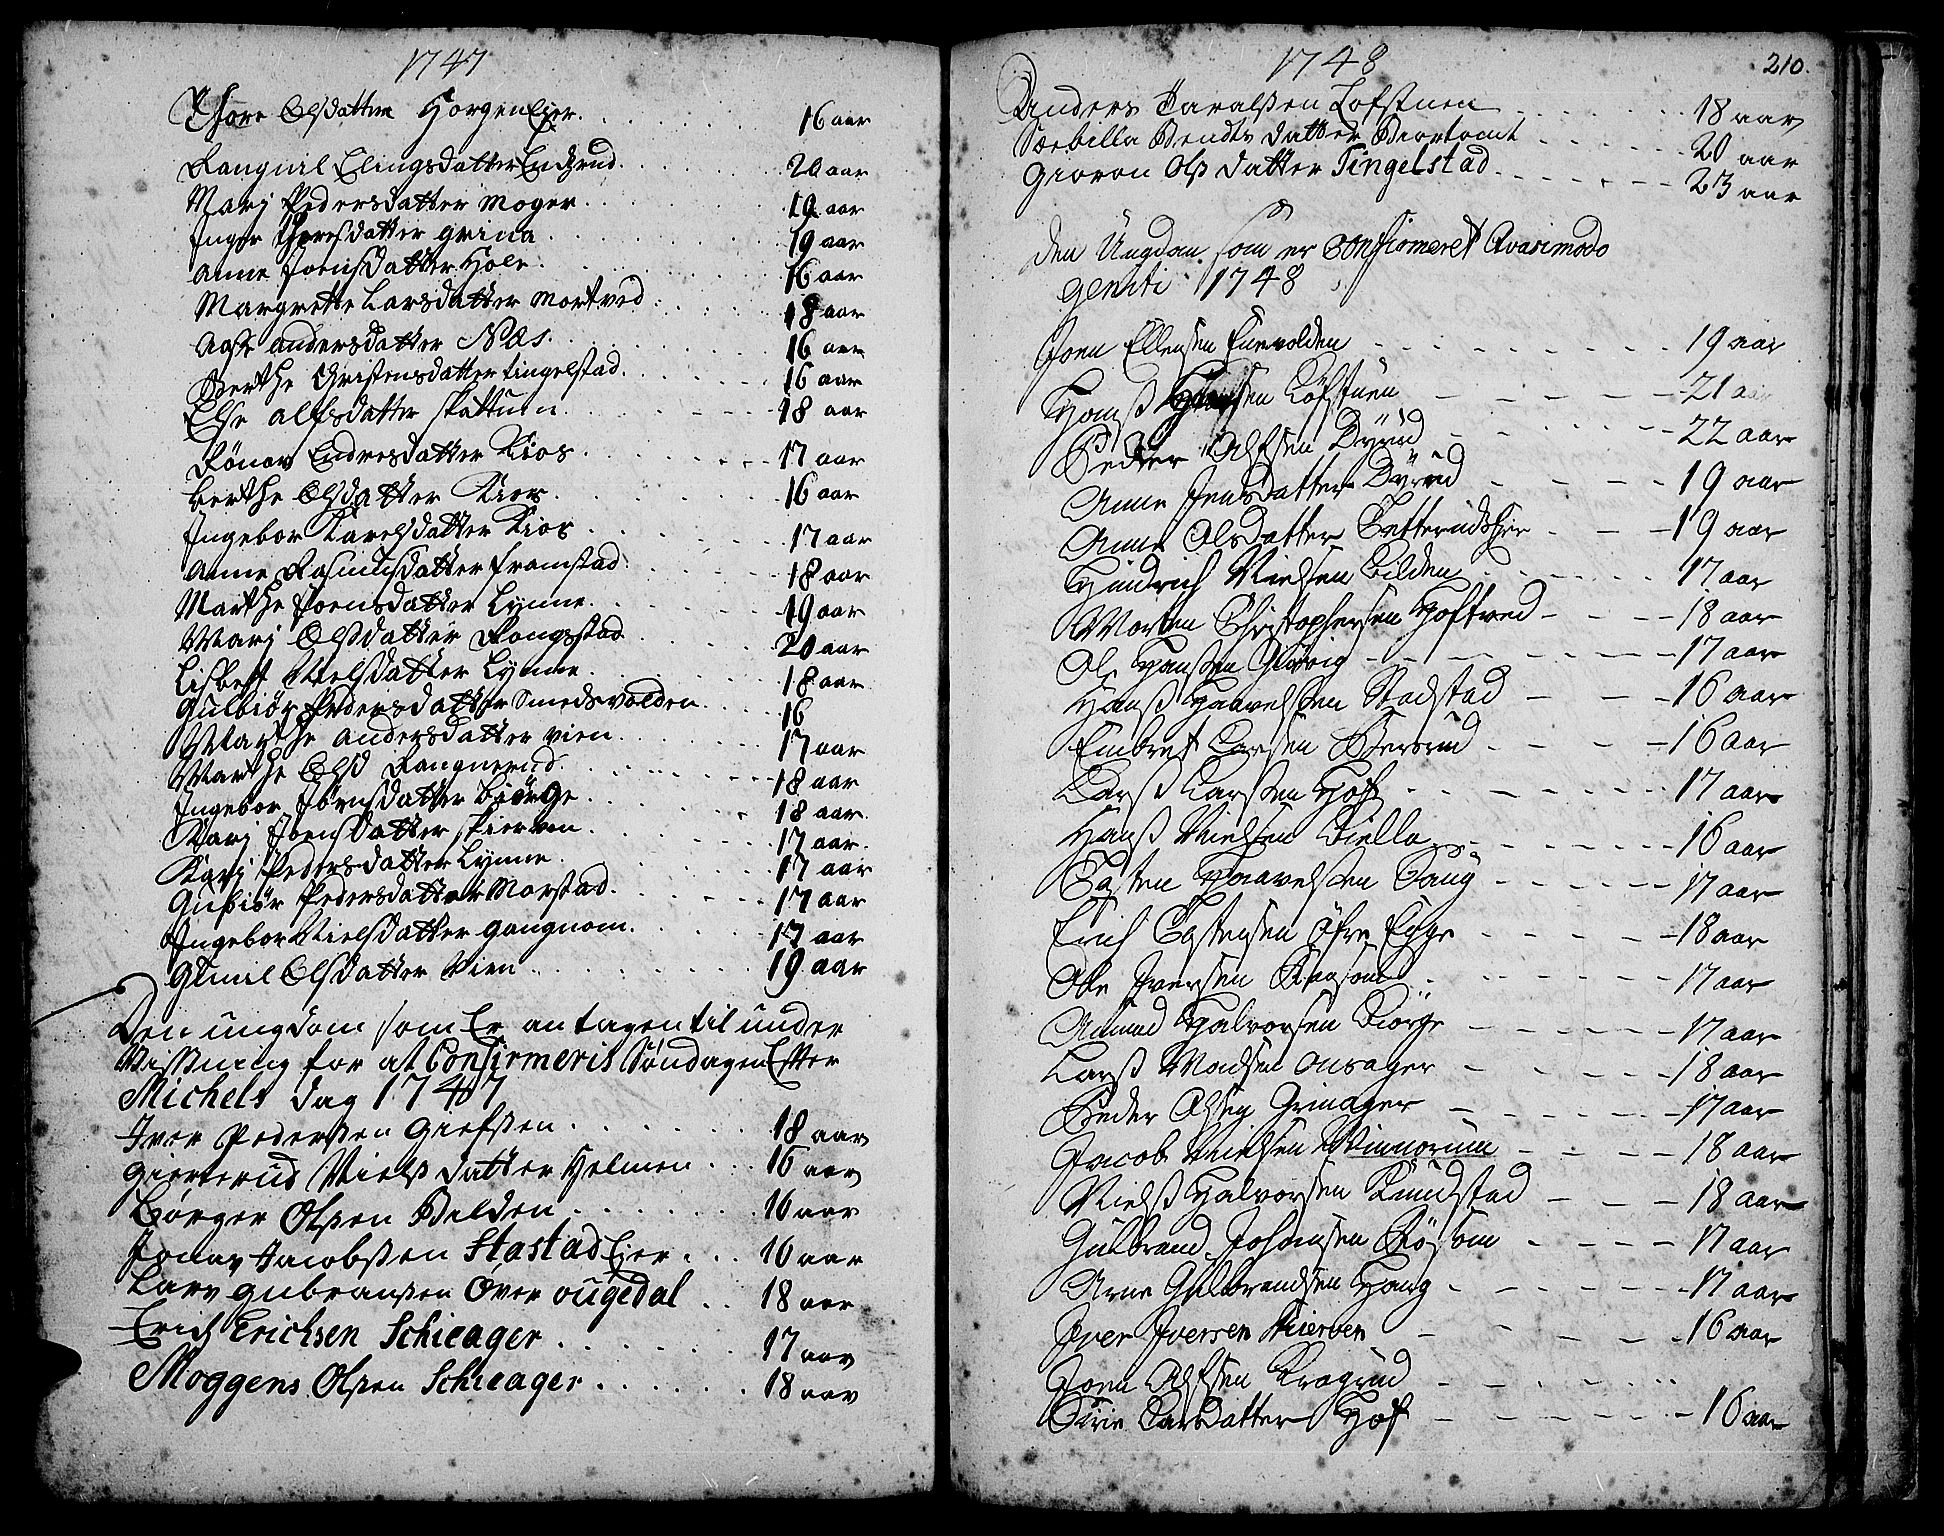 1747
Thore Olsdatter HorgenEjer. 16 aar
Rangnil ElingsdatterEndrud. 20 aar
Marj Pedersdatter Moger 19 aar
Inger Thoresdatter Grina 19 aar
Anne Joensdatter Hole 16 aar
Margrette Larsdatter Mortved 18 aar
Aase andersdatter Næs. 16 aar
Berthe Christensdatter tingelstad. 16 aar
Else alfsdatter skattum 18 aar
Rønov Endresdatter Kios 17 aar
Berthe Olsdatter Kios 16 aar
Ingebor Karelsdatter Kios 17 aar
Anne Rasmusdatter framstad 18 aar
Marthe Joensdatter Lynne 19 aar
Marj Olsdatter Rongstad 20 aar
Lisbeth Nielsdatter Lynne 18 aar
Gulbiør Pedersdatter Smedsvolden 16
Marthe andersdatter vien 17 aar
Marthe Olsd Rangnerud 18 aar
Ingebor Jørensdatter Biørge 18 aar
Karj Joensdatter skierven 17 aar.
Karj Pedersdatter Lynne 17 aar
Gulbiør Pedersdatter Morstad. 17 aar
Ingebor Nielsdatter Gangnom 17 aar
Gunil Olsdatter Vien 19 aar
Den ungdom som Er antagen til under
Viisning for at Confirmeris Søndagen Effter
Michels dag 1747
Iver Pederssen Giefsen 18 aar
Gierterud Niels datter Helmen 16 aar
Børger Olssen Bilden 16 aar
Jonas Jacobssen Stastad Ejer. 16 aar
Lars gubranssen Over ougedal 18 aar
Erich Erichsen Schieager 17 aar
Moggens Olssen Schieager 18 aar
1748
210.
Anders Haralssen Lofstuen 18 aar
Sæbilla Bendts datter 20 aar
Gioron Ols datter Tingelstad 23 aar
Den Ungdom som er Confirmeret Qvasimodo
geniti 1748
Joen Ellensen Enevolden 19 aar
Hans Hansen Løfstuen 21 aar
Peder Alfsen Dyrud 22 aar
Anne Jensdatter Dyrud 19 aar
Anne Olsdatter Sætterudseier 19 aar
Hindrich Nielsen Bilden 17 aar
Morten Christophersen Hoftved 18 aar
Ole Hansen Glørvig 17 aar
Hanss Haavelsen Stadstad 16 aar
Embret Larsen Bersrud 16 aar
Lars Larssen Hof 17 aar
Hanss Nielsen Biella 16 aar
Østen Haavelsen Haug 17 aar
Erich Østensen Øfre Egge 18 aar
Ole Iversen Ransom 17 aar
Amund Halvorsen Biørge 17 aar
Larss Madsen Onsager 18 aar
Peder Olsen Grinager 17 aar
Jacob Nielsen Winnorum 18 aar
Nielss Halvorsen Knudstad 18 aar
Gulbrand Johansen Røssom 17 aar
Arne Gulbrandssen Haug 17 aar
Iver Iversen Skierven 16 aar
Joen Alfsen Kragrud
Sirie Larsdatter Hof 16 aar